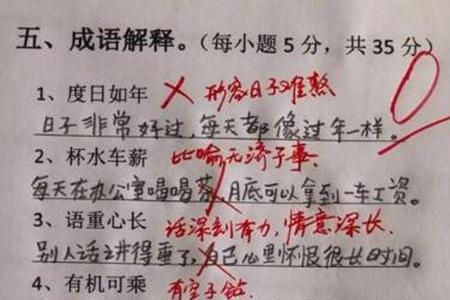 五、成语解释。(每小题5分，共35分)
1、度日如年 ✗ 形容日子难熬 0
日子非常好过，每天都像过年一样。
2、杯水车薪 比喻无济于事、
每天在办公室喝喝茶，月底可以拿到一车工资。
3、语重心长 话深刻有力，情意深长.
别人话讲得重了，自己心里怀恨很长时间。
4、有机可乘 有空子钻